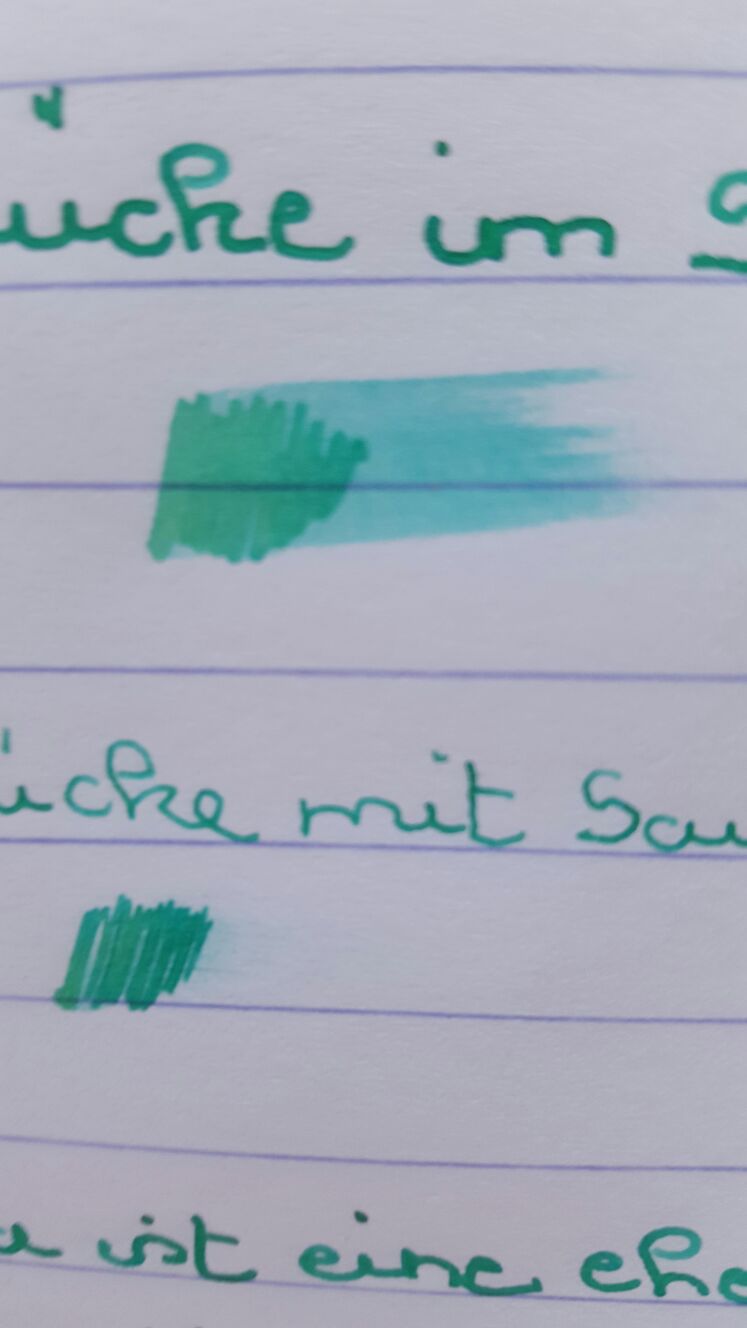 ücke im
ücke mit Sau
ist eine ehe